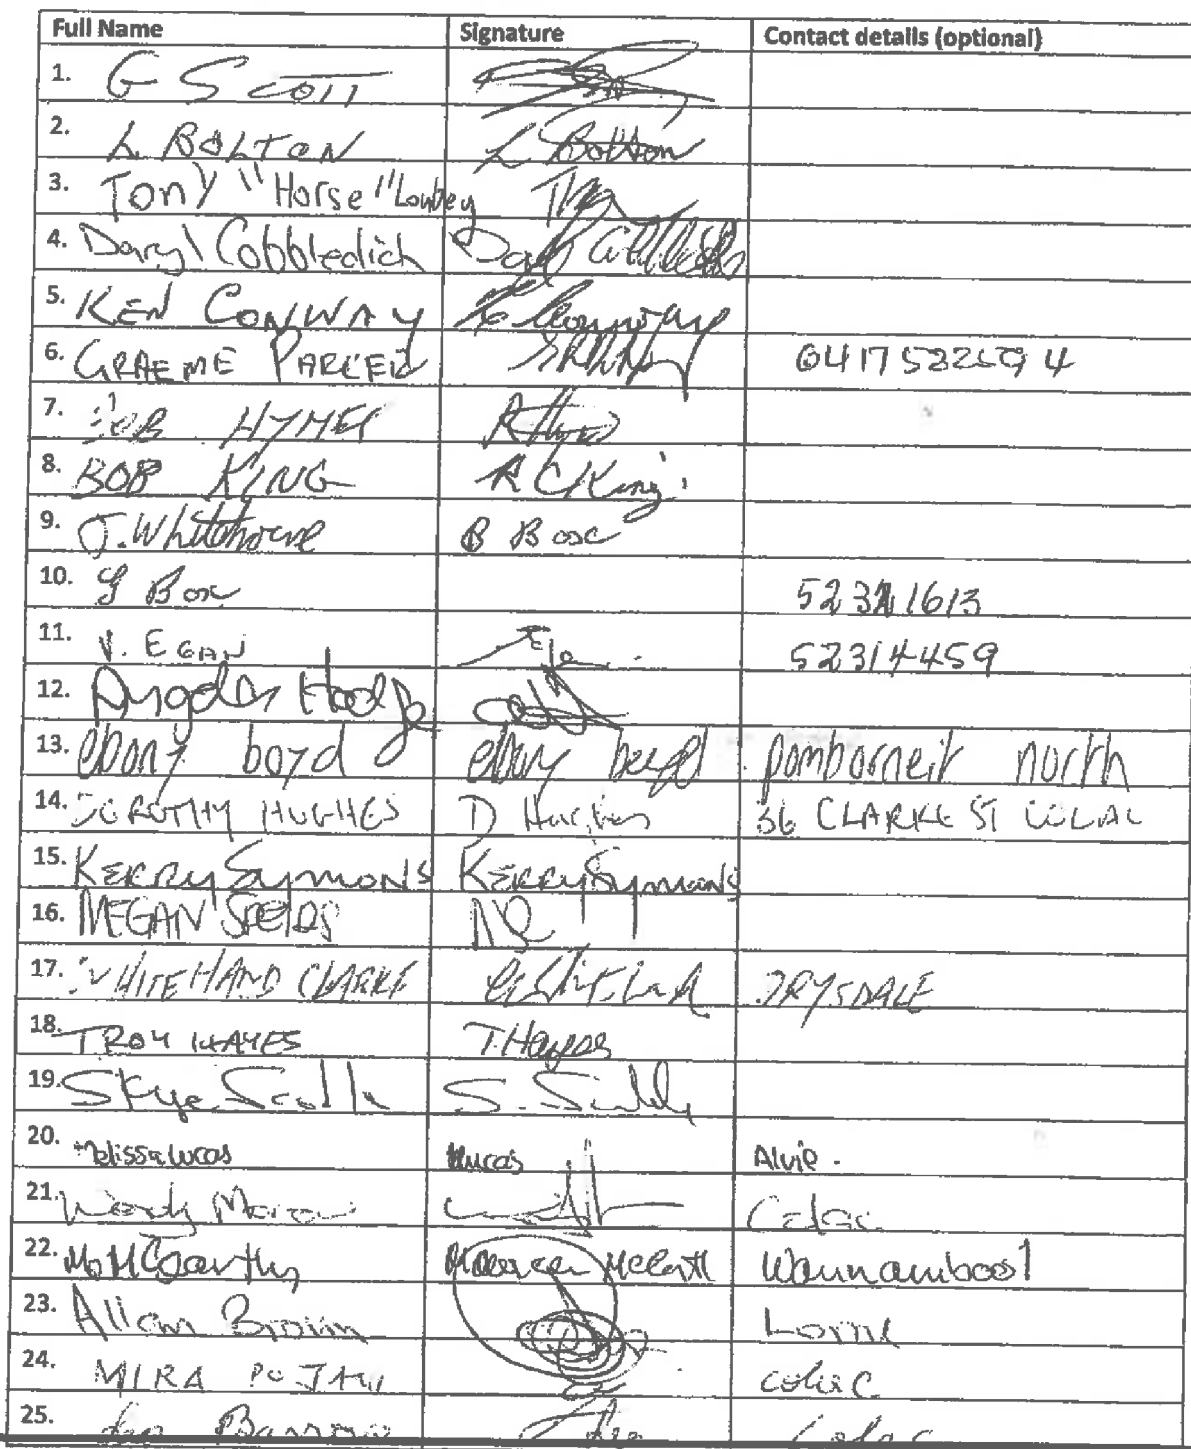 Full Name Signature Contact details (optional)
1. G SCOTT
2. L BOLTON L Bolton
3. Tony "Horse" Lowbey
4. Daryl Cobbledich
5. KEN CONWAY K Conway
6. GRAEME PARKER
7. BOB HYMES
8. BOB KING R C King
9. J. Whitehorne B Box
10. G Box 52321613
11. V. EGAN 52314459
12. Hodge
13. ebony boyd ebony boyd pomborneit north
14. DOROTHY HUGHES D Hughes 36 CLARKE ST COLAC
15. KERRY SYMONS KERRY Symons
16. MEGAN
17. WHITEHAND CLARKE DRYSDALE
18. TROY HAYES T. Hayes
19. Skye Scully S. Scully
20. Melissa Lucas Mlucas Alvie.
21. Wendy Colac
22. Mo McCarthy Maureen McCarth Warrnambool
23. Allan Brown Lorne
24. MIRA colac
25. Colac